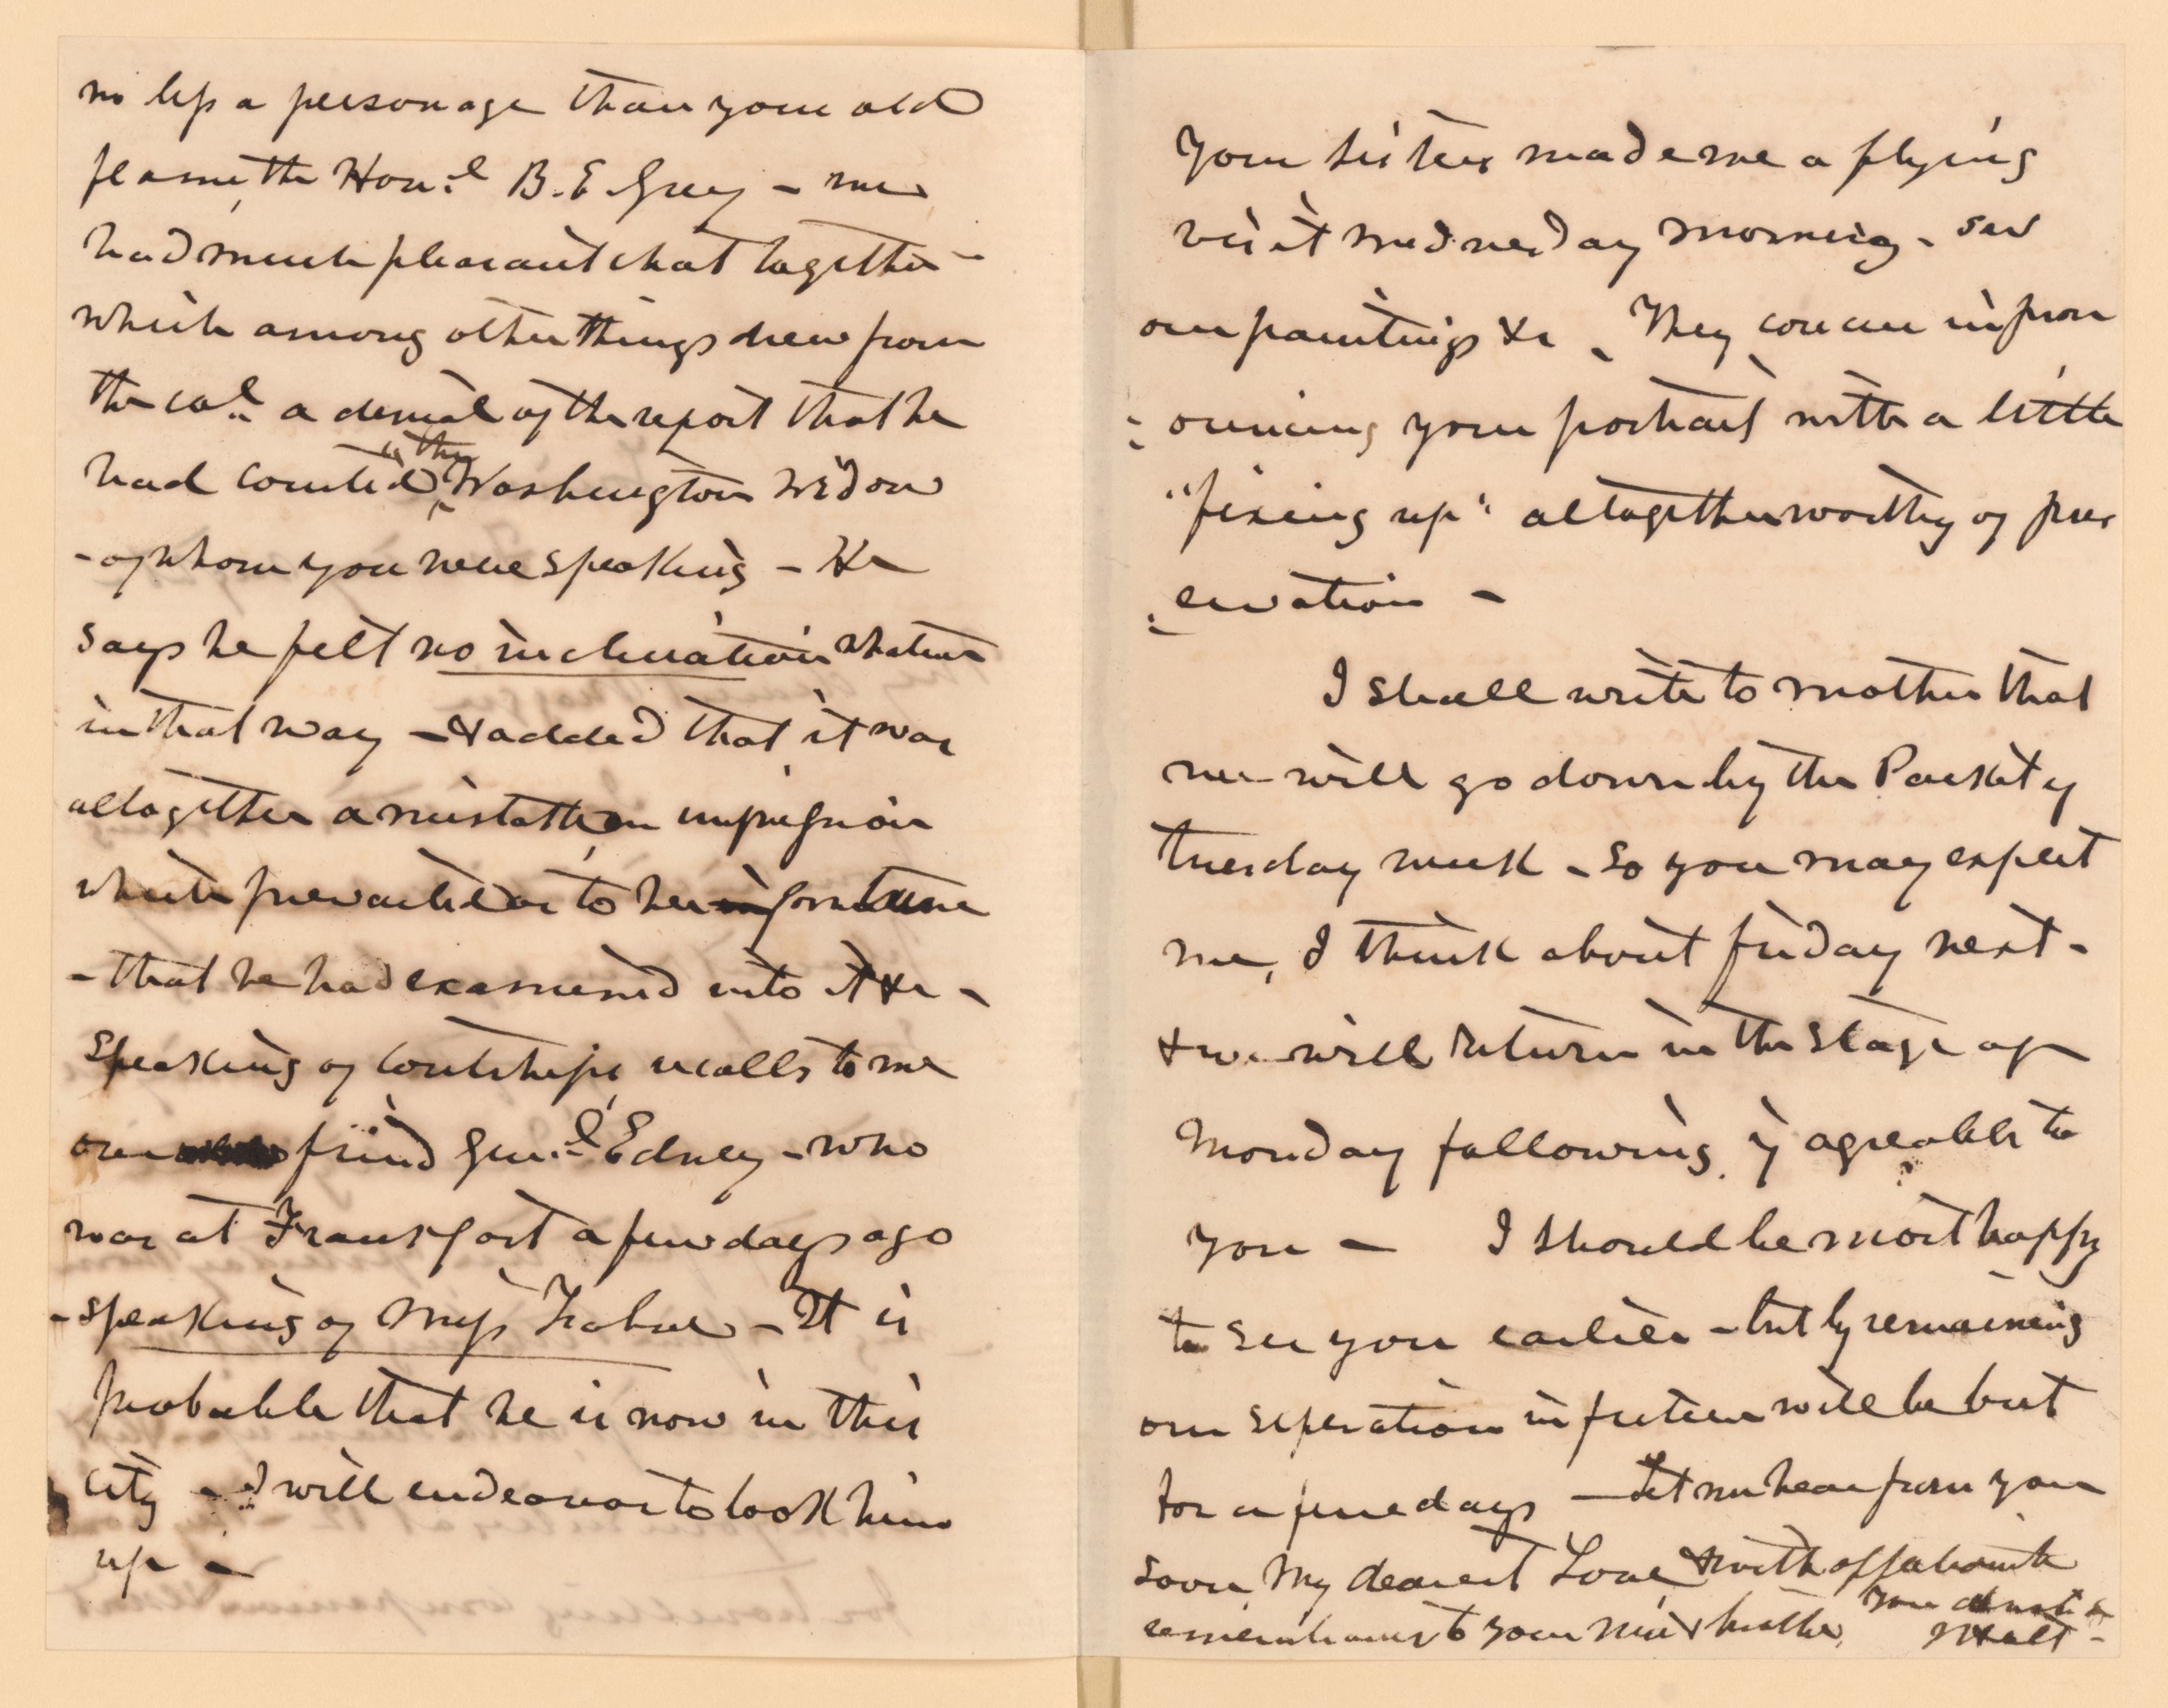 no less a personage than your old
flame, the Hon.l B. E. Grey – we
had much pleasant chat together –
which among other things drew from
the col. a denial of the report that he
had courted the Washington widow
- of whom you were speaking – He
says he felt no inclination whatever
in that way – & added that it was
altogether a mistake, an impression
which prevailed as to her fortune
- that he had examined into it &c –
Speaking of courtships, recalls to me
our friend Gen.l Edney – who
was at Frankfort a few days ago
- speaking of Miss – It is
probable that he is now in this
city – I will endeavor to look him
up –
Your sisters made me a flying
visit wednesday morning – saw
our paintings &c. They concur in pron
= ouncing your portrait with a little
"fixing up" altogether worthy of pres
= ervation –
I shall write to mother that
we will go down by the Packet of
tuesday week – so you may expect
me, I think about friday next –
& we will return in the stage of
Monday following, if agreable to
you – I should be most happy
to see you earlier – but by remaining
our seperation in future will be but
for a few days – Let me hear from you
soon, My dearest Love & with affectionate
remembrances to your & brother,
Your devoted